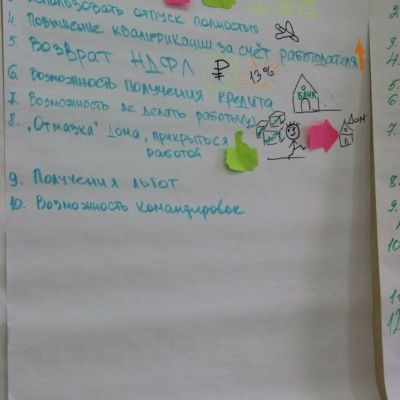 использовать отпуск полностью
4. Повышение квалификации за счёт работодателя
5 Возврат НДФЛ ₽ 13%
6. Возможность получения кредита
БАНК
7. Возможность не делать работы(у)
8. "Отмазка" дома, прикрыться
ДОМ
работой
9. Получения льгот
10. Возможность командировок
2.
3.
4.
5.
6.
7.
8.
9.
10
11
12